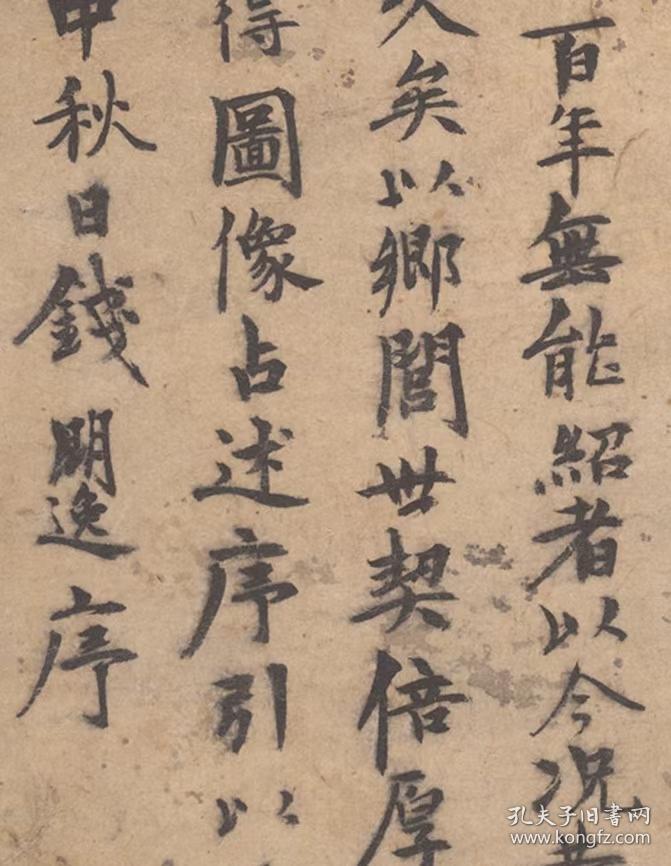 百年無能紹者以今況
矣以鄉閭世契倍厚
得圖像占述序引以
申秋日錢明逸序
孔夫子旧书网
www.kongfz.com